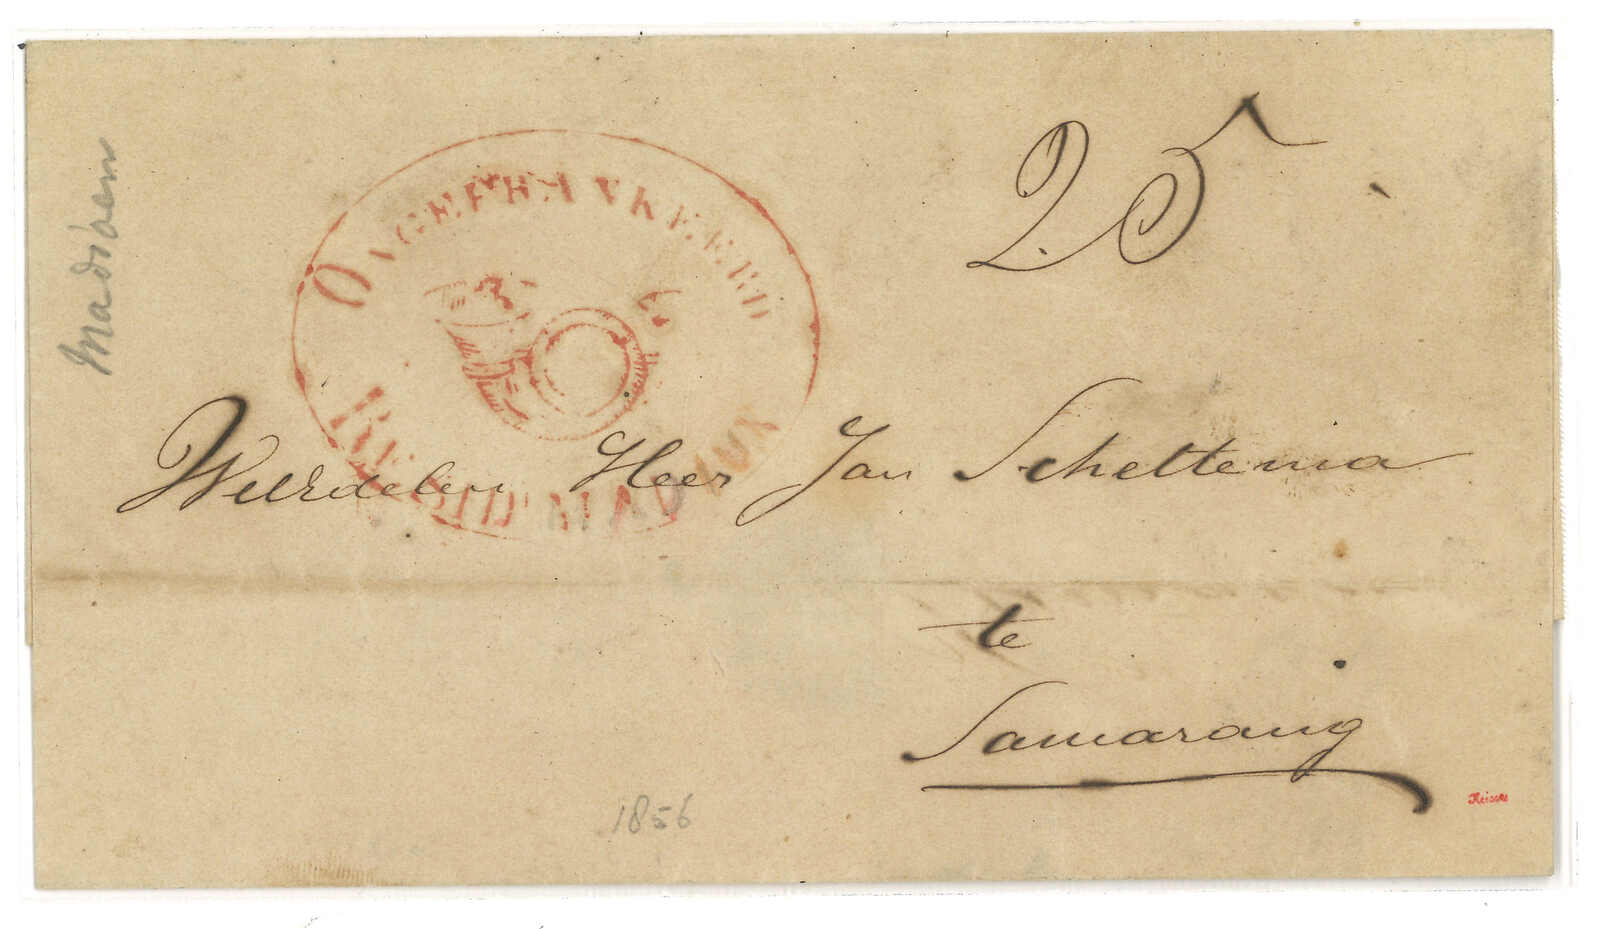 Madioen
ONGEFRANKEERD
RESID MADIOUN
25
WelEdelen Heer Jan Scheltema
te
Samarang
1856